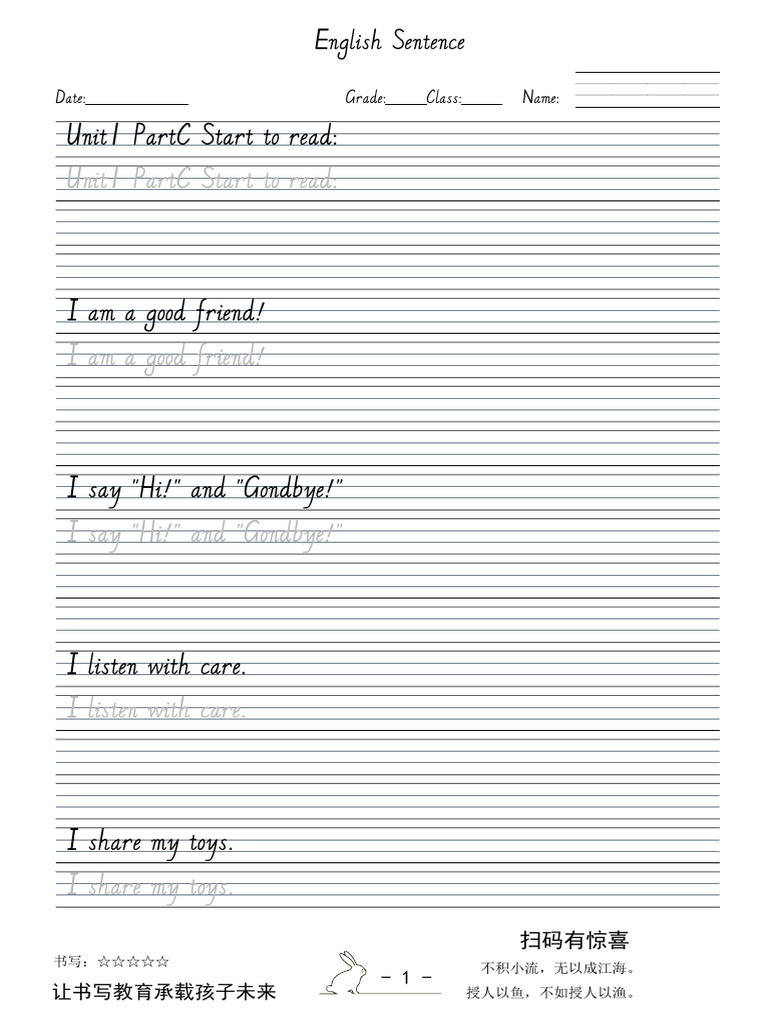 English Sentence
Date:__________ Grade:____Class:____ Name:
Unit1 PartC Start to read:
Unit1 PartC Start to read:
I am a good friend!
I am a good friend!
I say "Hi!" and "Gondbye!"
I say "Hi!" and "Gondbye!"
I listen with care.
I listen with care.
I share my toys.
I share my toys.
扫码有惊喜
书写：☆☆☆☆☆
不积小流，无以成江海。
- 1 -
让书写教育承载孩子未来
授人以鱼，不如授人以渔。